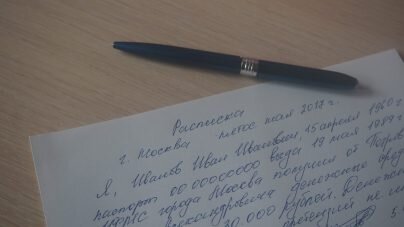 Расписка
г. Москва мая 2017 г.
Я, Иванов Иван Иванович, 15 апреля 1960 г
паспорт 00 00000000 выдан 19 мая 1989
города Москва получил от Петров
Александровича денежные сред
30 000 рублей. Денежн
претензий не им